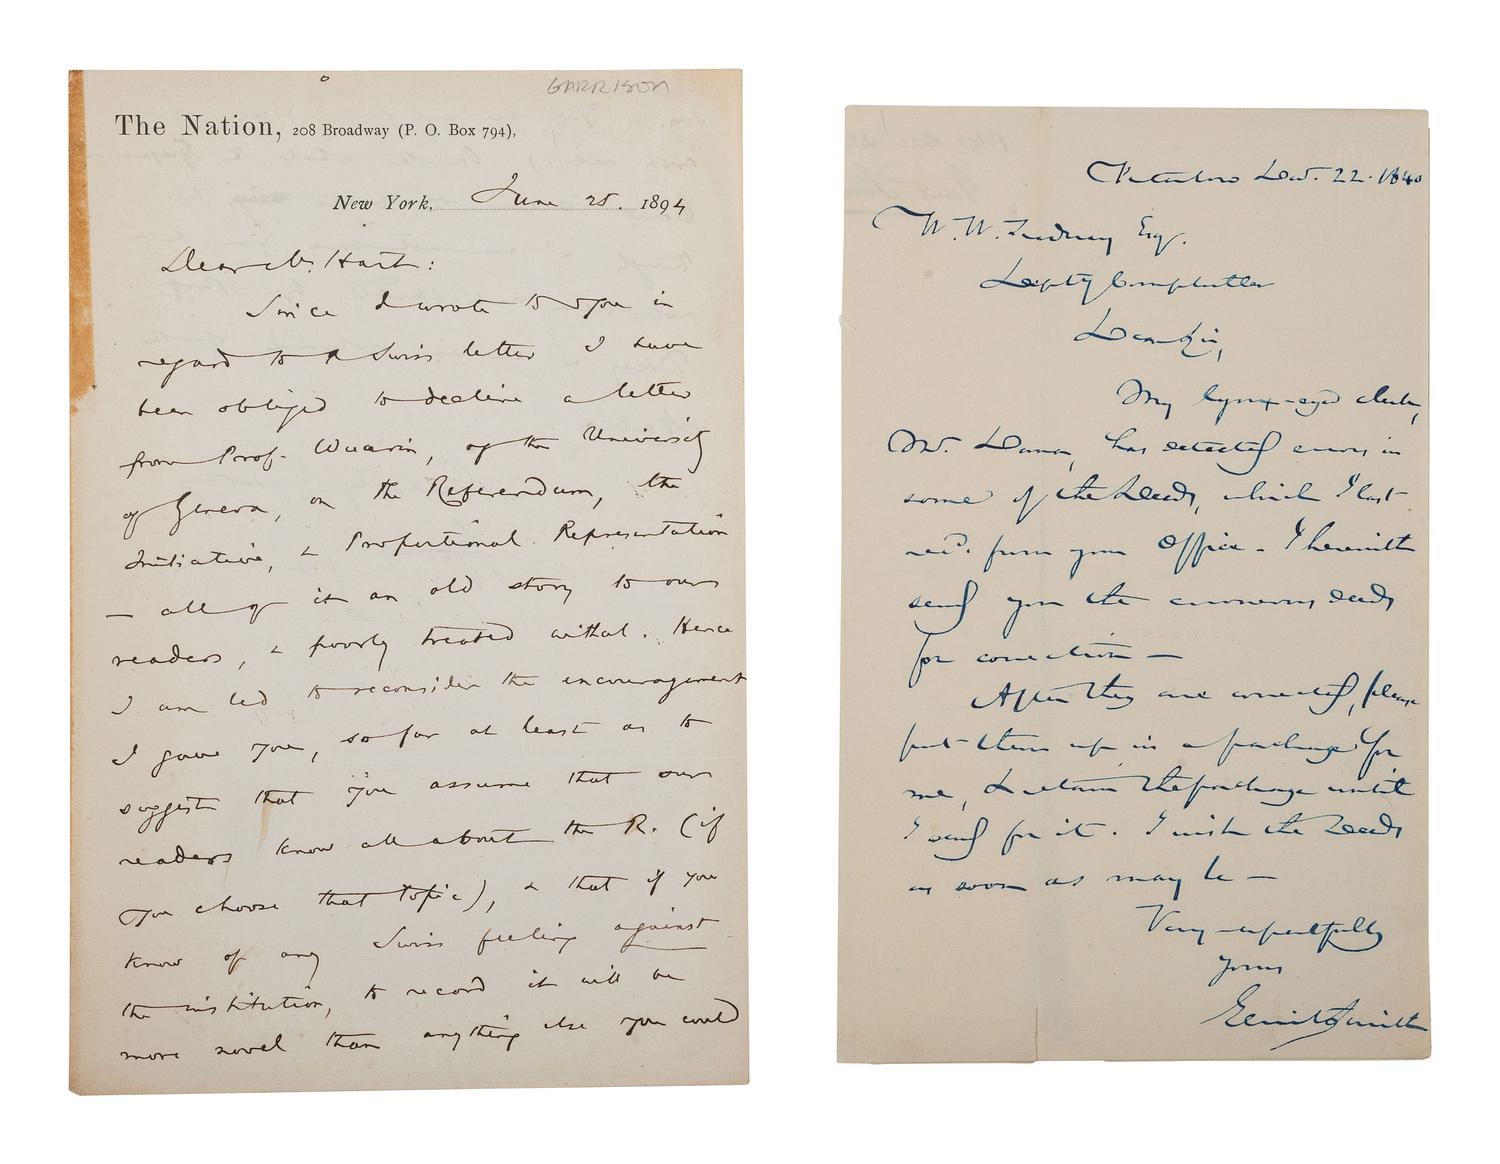 GARRISON
The Nation, 208 Broadway (P. O. Box 794),
New York, June 25. 1894
Dear Mr. Hart:
Since I wrote to you in
regard to a Swiss letter I have
been obliged to decline a letter
from Prof. Wuarin, of the University
of Geneva, on the Referendum, the
Initiative, & Proportional Representation
— all of it an old story to our
readers, & poorly treated withal. Hence
I am led to reconsider the encouragement
I gave you, so far at least as to
suggest that you assume that our
readers know all about the R. (if
you choose that topic), & that if you
know of any Swiss feeling against
the institution, to record it will be
more novel than anything else you could
Peterboro Dec. 22. 1840
W. W. Esq.
Depty Comptroller
Dear Sir,
My lynx-eyed clerk,
Mr. Dana, has detected errors in
some of the Deeds, which I last
recd. from your Office - I herewith
send you the erroneous deeds
for correction —
After they are corrected, please
put them up in a package for
me, & retain the package until
I send for it. I wish the Deeds
as soon as may be —
Very respectfully
yours
Gerrit Smith